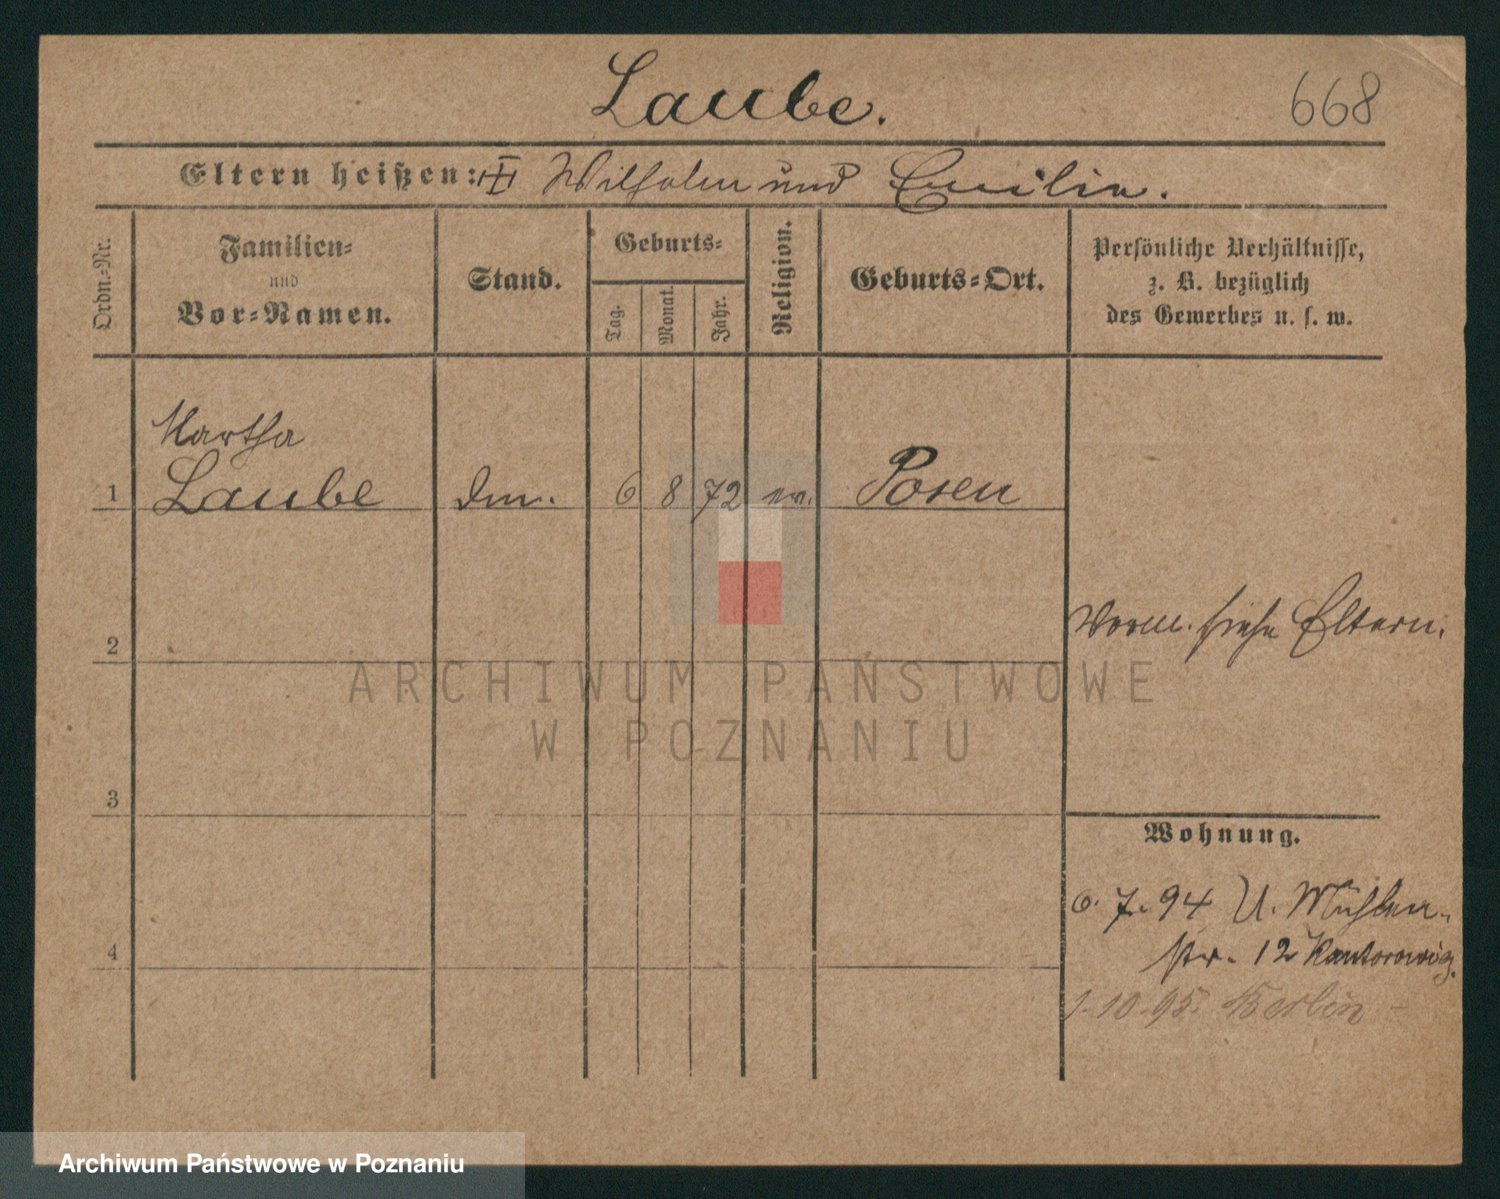 Laube.
668
Eltern heißen: Wilhelm und Emilie.
Ordn.-Nr.
Familien-
und
Vor-Namen.
Stand.
Geburts-
Tag.
Monat.
Jahr.
Religion.
Geburts-Ort.
Persönliche Verhältnisse,
z. B. bezüglich
des Gewerbes u. s. w.
Martha
1 Laube 6 8 72 ev. Posen
2
vorm. siehe Eltern.
3
Wohnung.
6. 7. 94 U. Mühlen-
4
str. 12 Kantorowicz.
1. 10. 95. Berlin
ARCHIWUM PAŃSTWOWE
W POZNANIU
Archiwum Państwowe w Poznaniu